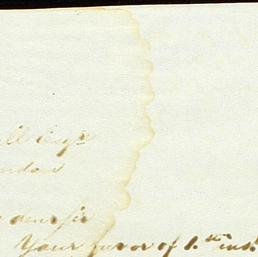 ll Esqr
ndon
dear Sir
Your favor of 1.th inst